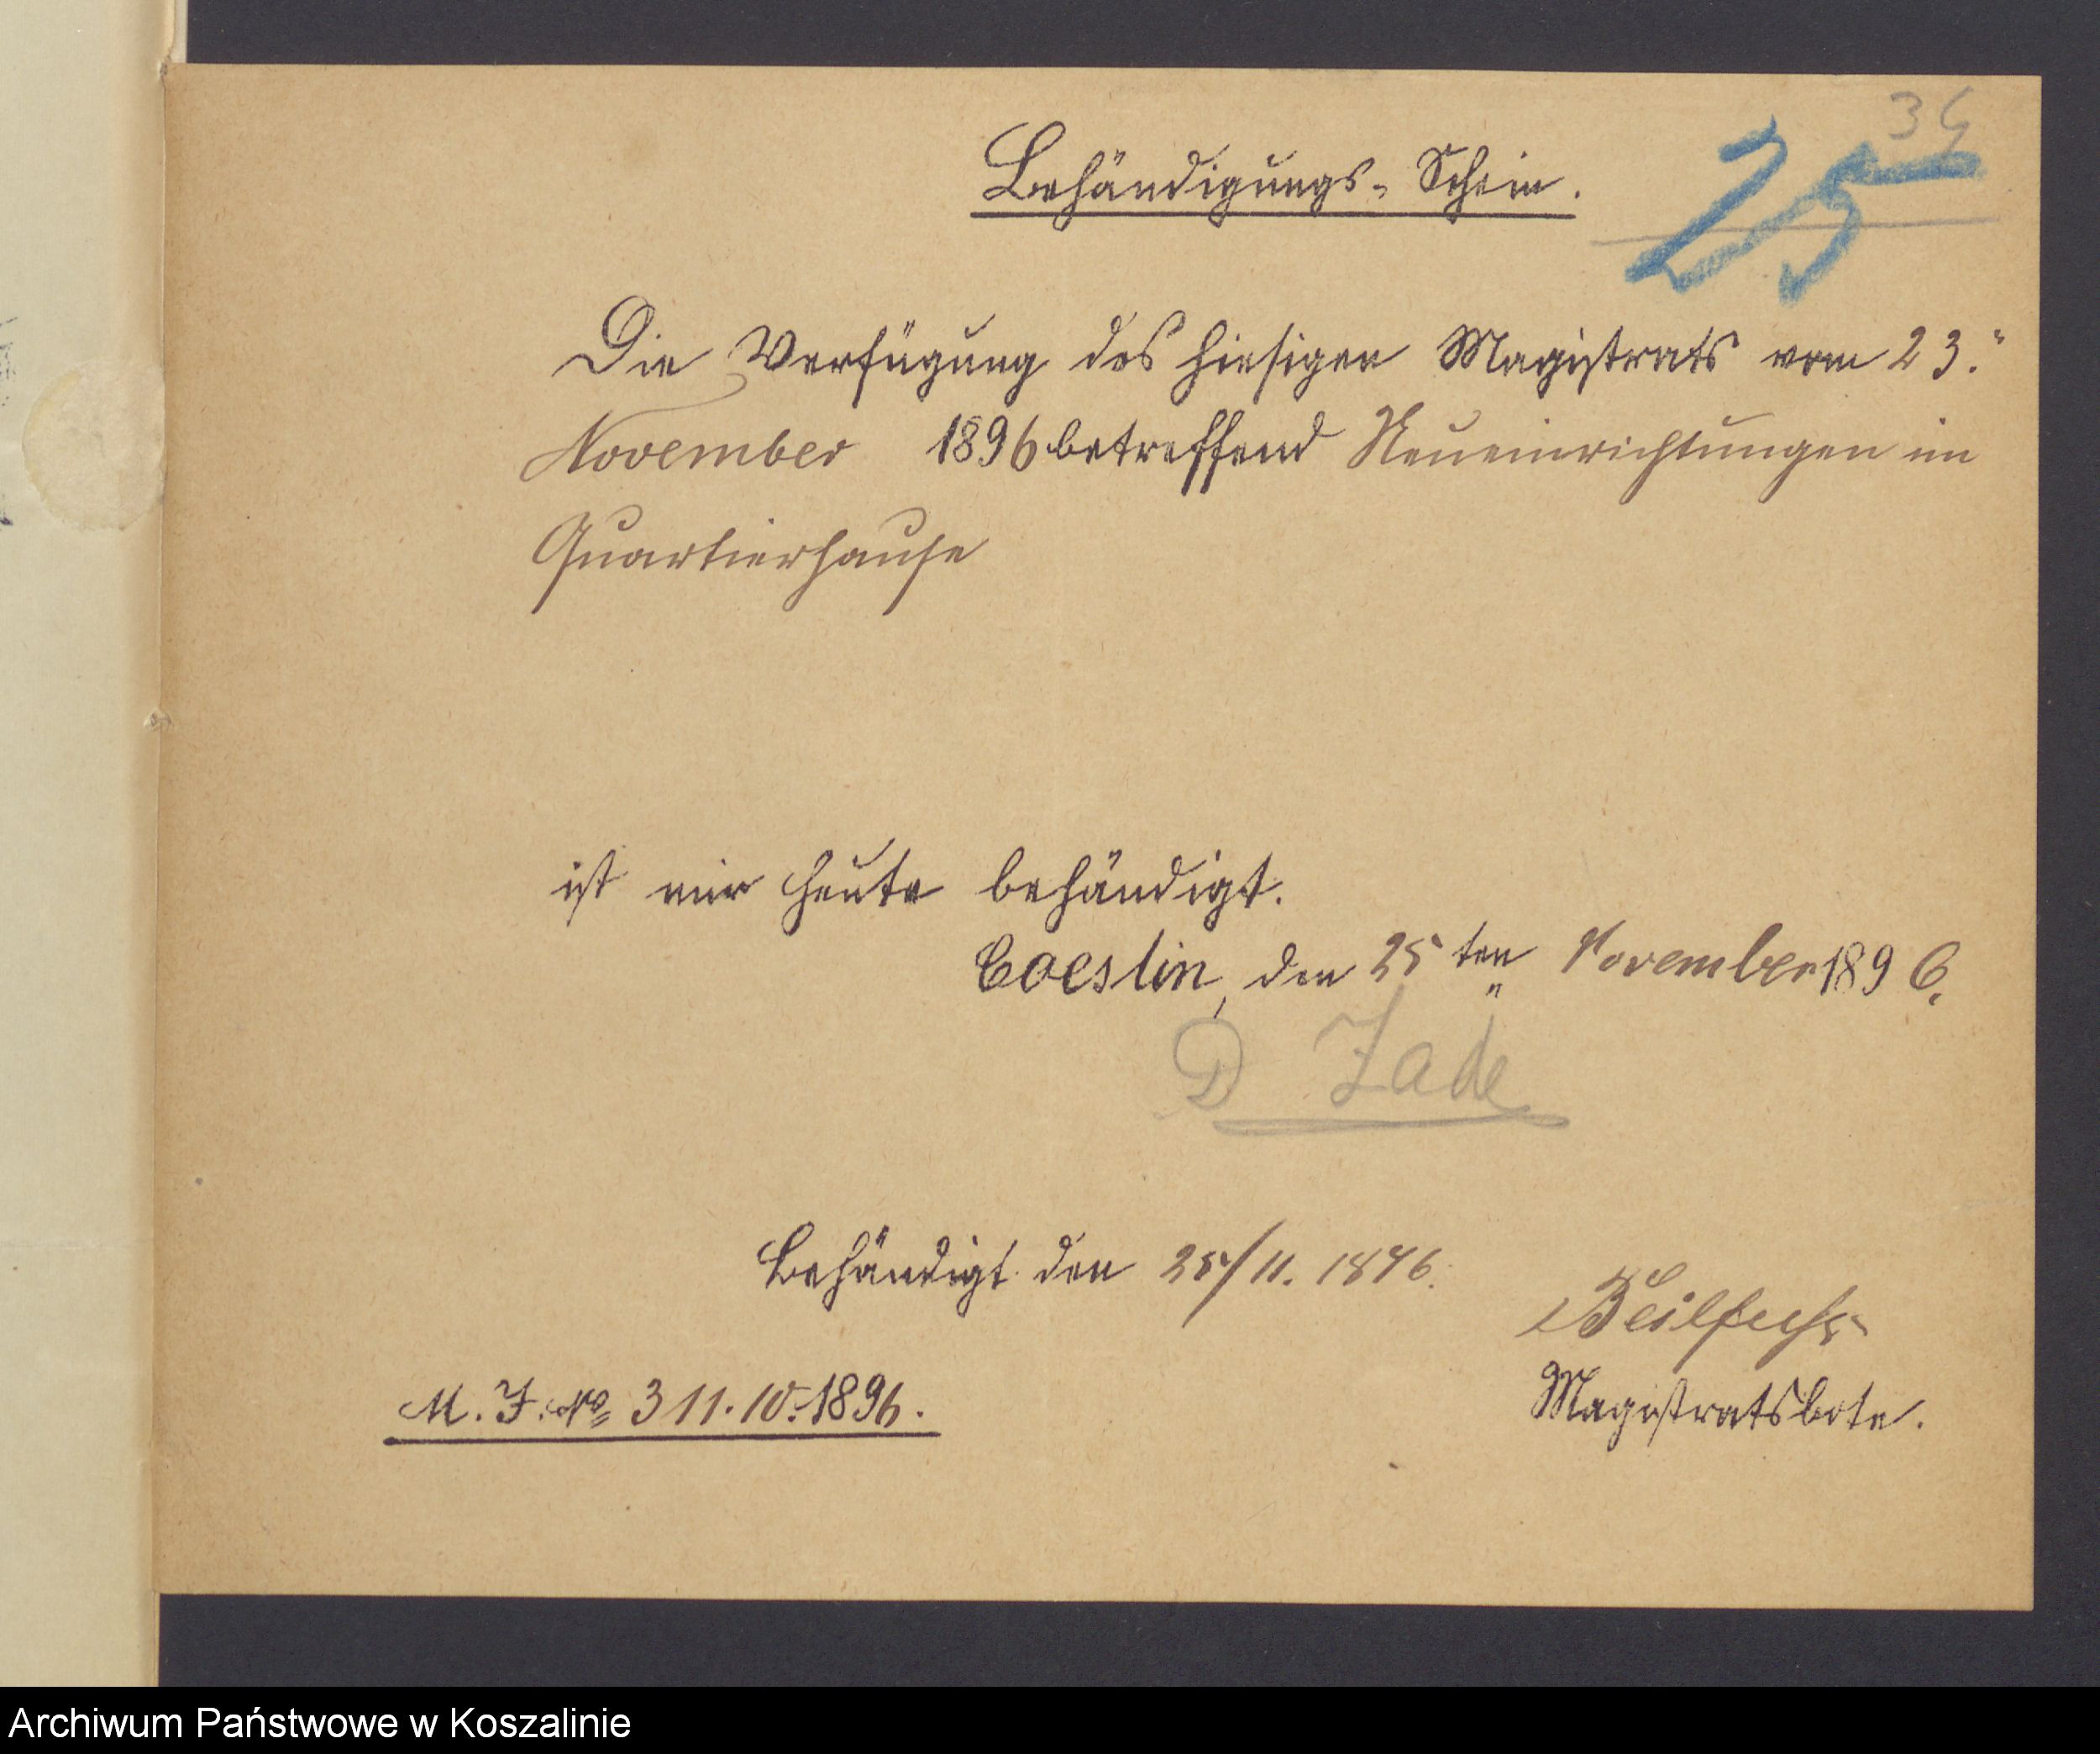 34
25
Behändigungs-Schein.
Die Verfügung des hiesigen Magistrats vom 23."
November 1896 betreffend Neueinrichtungen im
Quartierhause
ist mir heute behändigt.
Coeslin, den 25ten November 1896.
D Zade
Behändigt den 25/11. 1896.
Beilfuss
Magistratsbote.
M. J. No 311.10.1896.
Archiwum Państwowe w Koszalinie